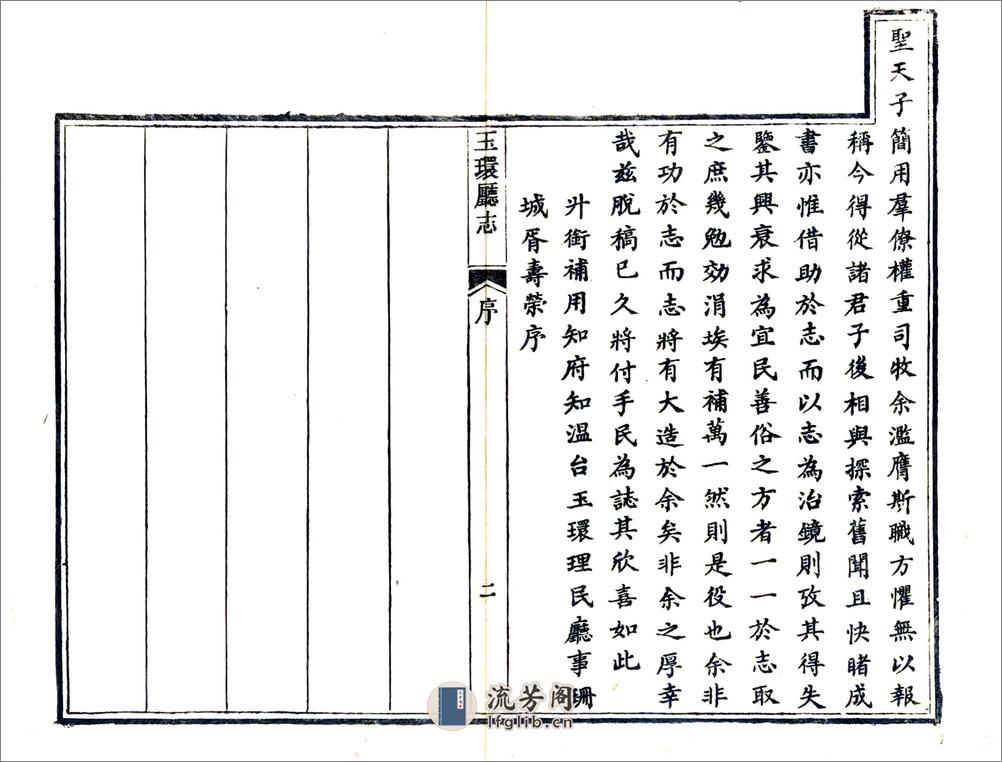 聖天子簡用羣僚權重司牧余濫膺斯職方懼無以報
稱今得從諸君子後相與探索舊聞且快睹成
書亦惟借助於志而以志為治鏡則攷其得失
鑒其興衰求為宜民善俗之方者一一於志取
之庶幾勉効涓埃有補萬一然則是役也余非
有功於志而志將有大造於余矣非余之厚幸
哉兹脱稿已久將付手民為誌其欣喜如此
升銜補用知府知温台玉環理民廳事珊
城胥壽榮序
玉環廳志
序
二
流芳阁
lfglib.cn